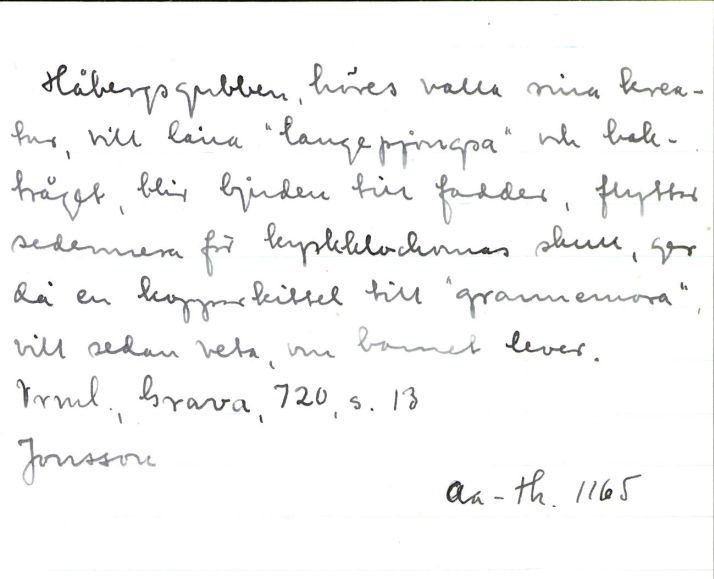 Håbergsgubben, höres valla sina krea-
tur, vill låna "langepjongsa" och bak-
tråget, blir bjuden till fadder, flyttar
sedermera för kyrkklockornas skull, ger
då en kopparkittel till "grannemora",
vill sedan veta, om barnet lever.
Vrml., Grava, 720, s. 13
Jonsson
Aa-Th. 1165